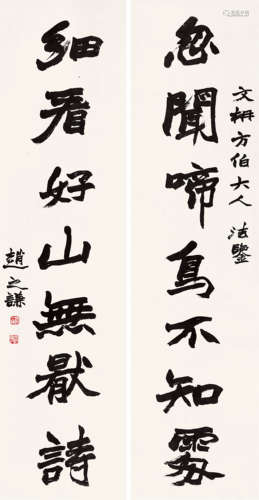 文枬方伯大人法鑒
忽聞啼鳥不知處
細看好山無厭詩
趙之謙